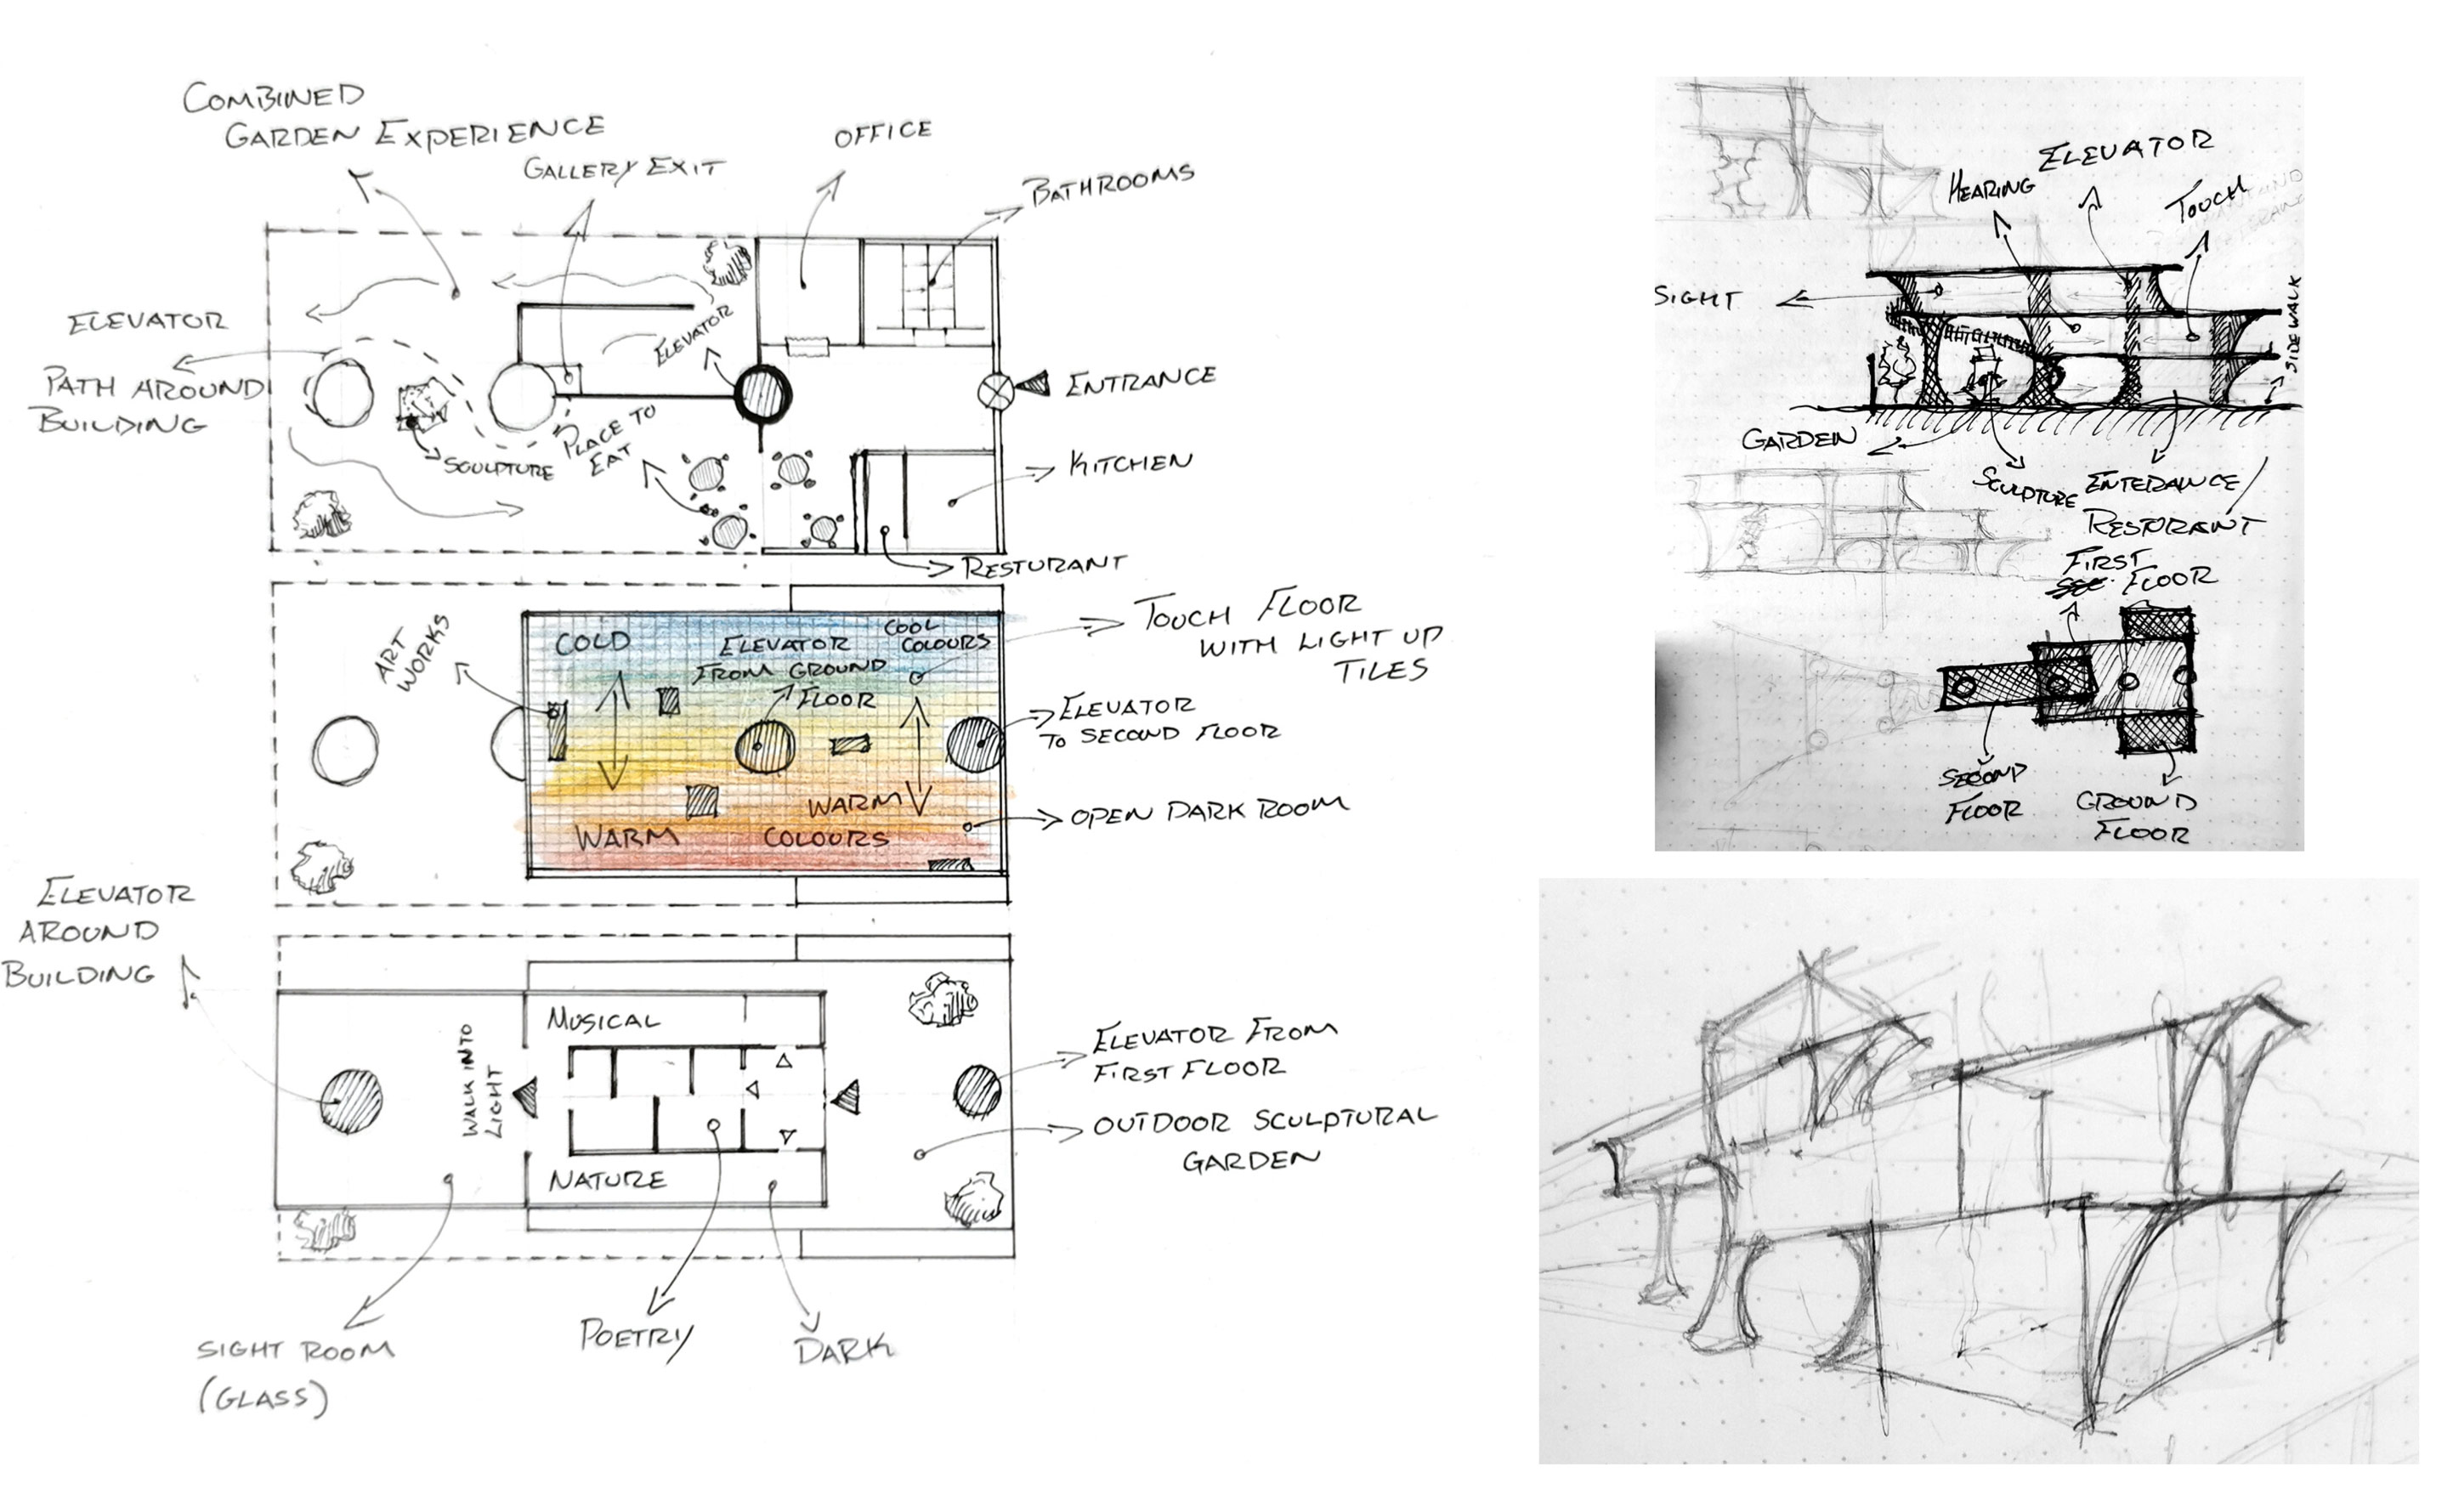 COMBINED
GARDEN EXPERIENCE
GALLERY EXIT
OFFICE
BATHROOMS
ELEVATOR
PATH AROUND
BUILDING
ELEVATOR
ENTRANCE
SCULPTURE
PLACE TO
EAT
KITCHEN
RESTURANT
ART
WORKS
COLD
ELEVATOR
FROM GROUND
FLOOR
COOL
COLOURS
TOUCH FLOOR
WITH LIGHT UP
TILES
ELEVATOR
TO SECOND FLOOR
WARM
WARM
COLOURS
OPEN DARK ROOM
ELEVATOR
AROUND
BUILDING
MUSICAL
WALK INTO
LIGHT
NATURE
ELEVATOR FROM
FIRST FLOOR
OUTDOOR SCULPTURAL
GARDEN
SIGHT ROOM
(GLASS)
POETRY
DARK
ELEVATOR
HEARING
TOUCH
SIGHT
SIDEWALK
GARDEN
SCULPTURE
ENTERANCE
RESTORAINT
FIRST
FLOOR
SECOND
FLOOR
GROUND
FLOOR